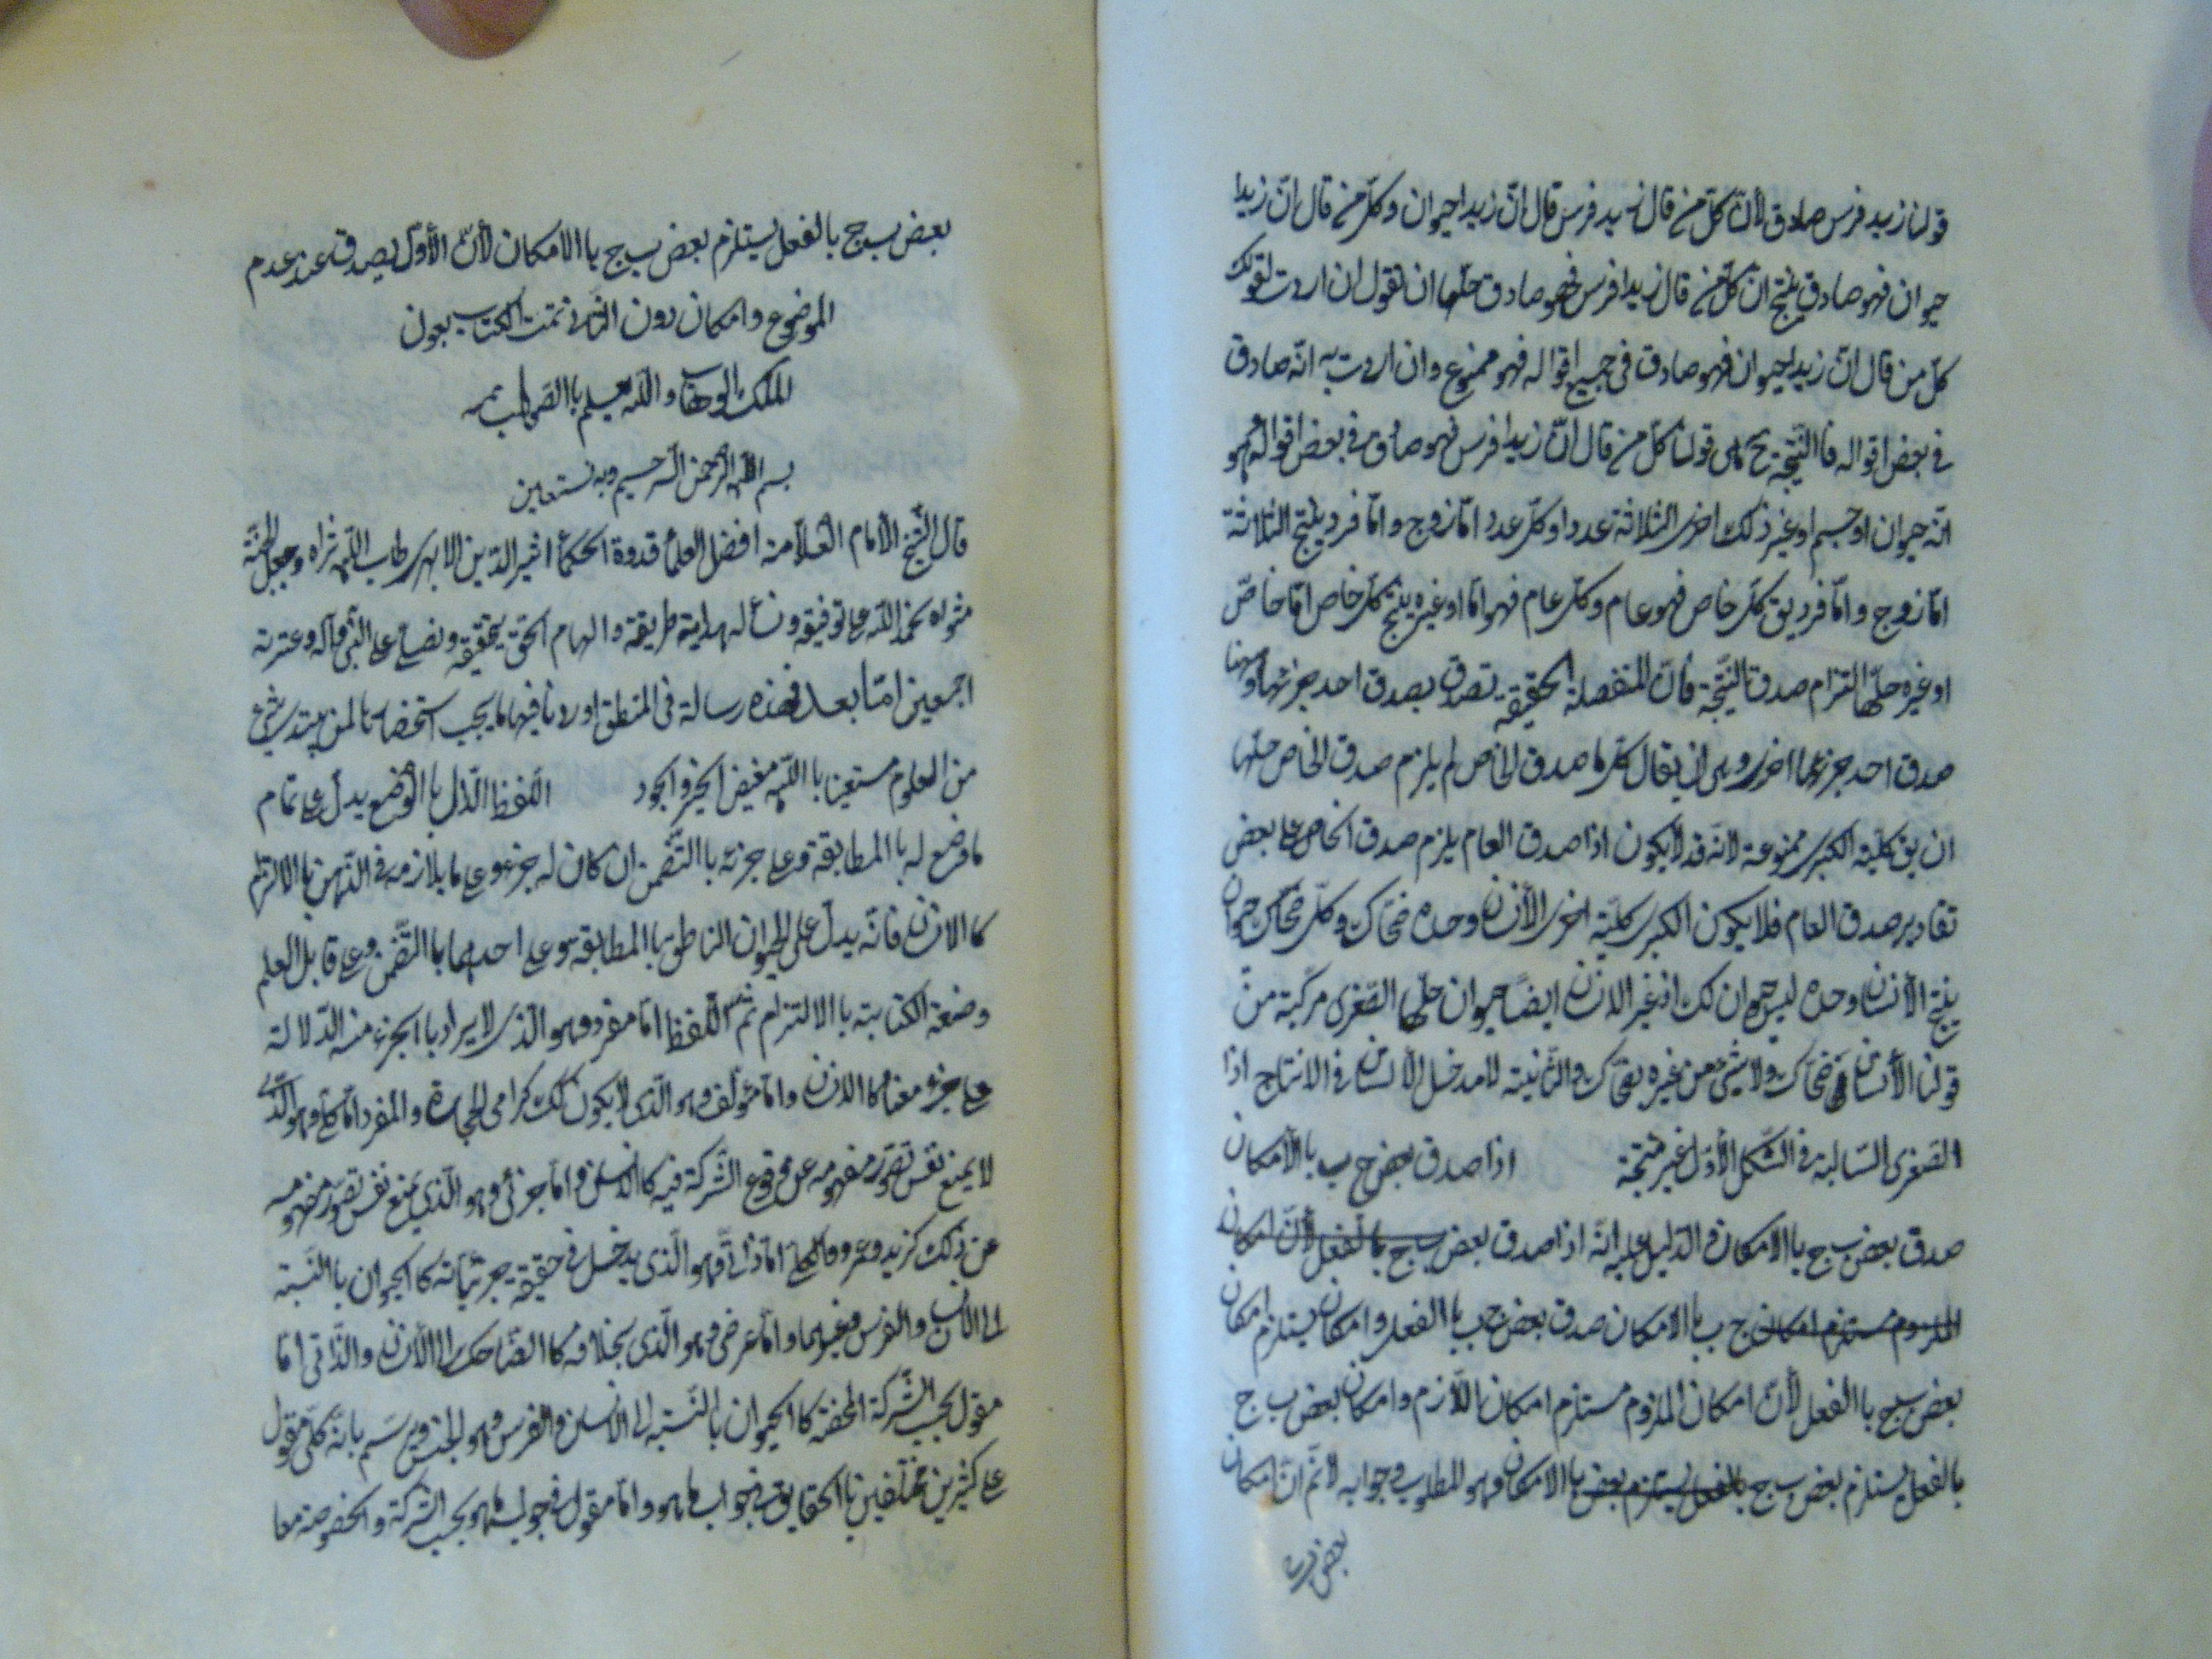 قولنا زيد فرس صادق لأنّ كلّ من قال زيد فرس قال انّ زيدا حيوان وكلّ من قال انّ زيدا
حيوان فهو صادق ينتج ان كلّ من قال زيدا فرس فهو صادق حلّها ان نقول ان اردت بقولك
كلّ من قال انّ زيدا حيوان فهو صادق فى جميع اقواله فهو ممنوع وان اردت به انّه صادق
فى بعض اقواله فا النّتيجة ح هى قولنا كلّ من قال انّ زيدا فرس فهو صادق فى بعض اقواله وهو
انّه حيوان او جسم او غير ذلك اخرى الثلاثة عدد وكلّ عدد امّا زوج وامّا فرد ينتج الثلاثة
امّا زوج وامّا فرد يق كلّ خاص فهو عام وكلّ عام فهو امّا او غيره ينتج كلّ خاص امّا خاصّ
او غيره حلّها التزام صدق النّتيجة فانّ المنفصلة الحقيقة تصدق بصدق احد جزئيها وههنا
صدق احد جزئيها اخرى وهى ان يقال كلّما صدق الخاص لم يلزم صدق الخاص حلّها
ان يق كليّة الكبرى ممنوعة لانّه قد لايكون اذا صدق العام يلزم صدق الخاص على بعض
تقادير صدق العام فلا يكون الكبرى كليّة اخرى الأنسان وحده ضحّاك وكلّ ضحّاك حيوان
ينتج الأنسان وحده ليس حيوان لك اذ غير الانسان ايضًا حيوان حلّها الصّغرى مركّبة من
قولنا الأنسان ضحّاك ولا شئ من غيره بضحّاك والثّانية لا مدخل للأنسان فى الانتاج اذا
الصّغرى السّالبة فى الشّكل الأوّل غير منتجة اذا صدق بعض ج ب با الأمكان
صدق بعض ب ج با الامكان والدّليل عليه انّه اذا صدق بعض ب ج بالفعل لأنّ امكان
الملزوم مستلزم امكان ج ب با الامكان صدق بعض ج ب با الفعل وامكان يستلزم امكان
بعض ب ج با الفعل لأنّ امكان الملزوم مستلزم امكان اللّازم وامكان بعض ب ج
بالفعل يستلزم بعض ب ج بالفعل يستلزم بعض با الامكان وهو المطلوب وجوابه لانم انّ امكان
بعض ب ج بالفعل يستلزم بعض ب ج با الامكان لأنّ الأوّل يصدق عند عدم
الموضوع وامكان دون الثّانى تمت الكتاب بعون
الملك الوهاب والله يعلم با الصّواب تمه
بسم الله الرّحمن الرّحيم وبه نستعين
قال الشّيخ الأمام العلاّمة افضل العلمأ قدوة الحكمأ اثير الدّين الابهرى طاب اللّه ثراه وجعل الجنّة
مثواه نحمد اللّه على توفيقه ونسأله هداية طريقه والهام الحق بتحقيقه ونصلّى على النّبى وآله وعترته
اجمعين امّا بعد فهذه رسالة فى المنطق اوردنا فيها ما يجب استحضارها لمن يبتدى شئ
من العلوم مستعينا با اللّه مفيض الخير والجود اللّفظ الدّال با الوضع يدلّ على تمام
ما وضع له با المطابقة وعلى جزئه با التّضمّن ان كان له جزء وعلى ما يلازمه فى الذّهن با الالتزام
كا الانسان فانّه يدلّ على الحيوان الناطق با المطابقة وعلى احدهما با التّضمّن وعلى قابل العلم
وصنعة الكتابته با الالتزام ثمّ اللّفظ امّا مفرد وهو الّذى لا يراد با الجزء منه الدّلالة
على جزء معناه كا الانسان وامّا مؤلّف وهو الّذى لايكون لك كرامى الحجارة والمفرد امّا كلّى وهو الّذى
لا يمنع نفس تصوّر مفهومه عن وقوع الشّركة فيه كا الانسان وامّا جزئى وهو الّذى يمنع نفس تصوّر مفهومه
عن ذلك كزيد وعمرو والكلّى امّا ذاتى وهو الّذى يدخل فى حقيقة جزئيّاته كا الحيوان با النّسبة
الى الانسان والفرس وغيرهما وامّا عرضى وهو الّذى بخلافه كا الضّاحك الى الأنسان والذّاتى امّا
مقول بحسب الشّركة المحضة كا الحيوان بالنّسبة الى الانسان والفرس وهو الجنس ويرسّم بانّه كلّى مقول
على كثيرين مختلفين با الحقايق فى جواب ما هو وامّا مقول فى جواب ما هو بحسب الشّركة والخصوصة معا